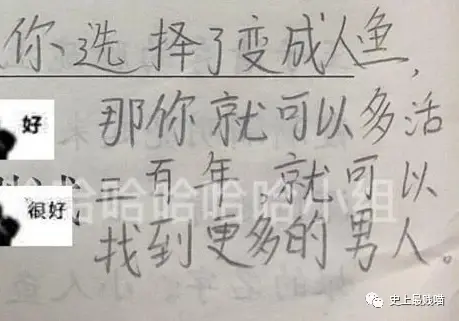 你选择了变成人鱼，
好
那你就可以多活
三百年，就可以
很好
找到更多的男人。
史上最贱喵